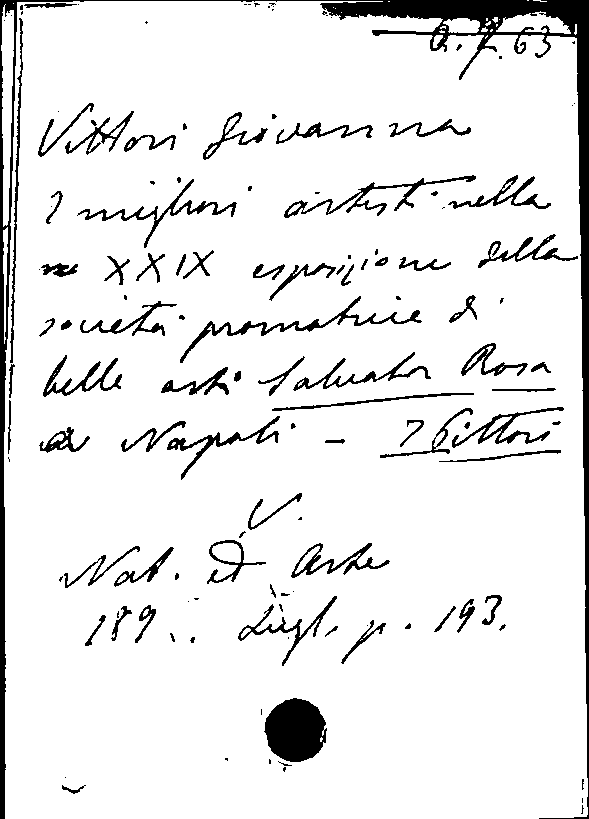 Q. 7. 63
Vittori Giovanna
I migliori artisti nella
XXIX esposizione della
società promotrice di
belle arti Salvator Rosa
di Napoli - I Pittori
V.
Nat. ed Arte
189 .. Lugl. p. 193.